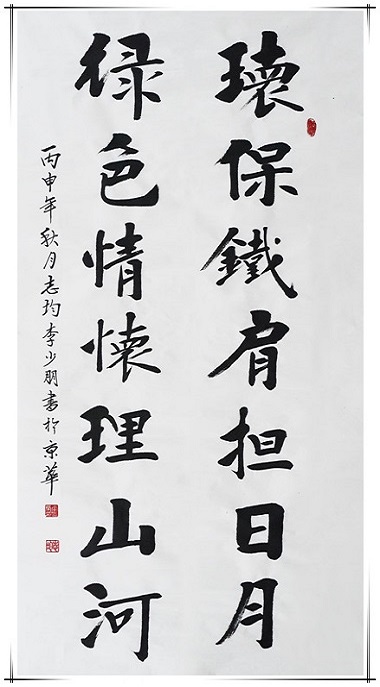 環保鐵肩担日月
绿色情懷理山河
丙申年秋月志灼李少朋書於京華